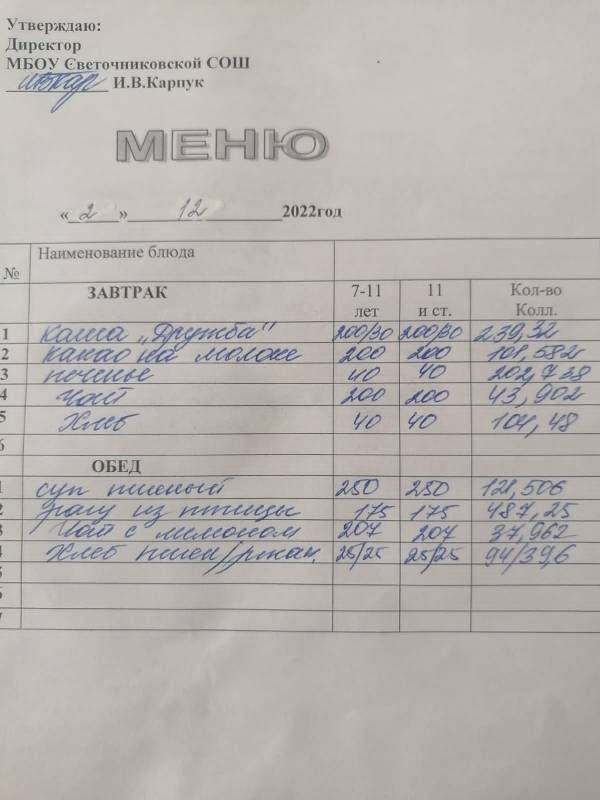 Утверждаю:
Директор
МБОУ Светочниковской СОШ
И.В.Карпук
МЕНЮ
« 2 » 12 2022год
№ Наименование блюда
ЗАВТРАК 7-11 лет 11 и ст. Кол-во Колл.
1 Каша „Дружба" 200/30 200/30 239,32
2 какао на молоке 200 200 101,582
3 печенье 40 40 202,738
4 Чай 200 200 43,902
5 Хлеб 40 40 104,48
6
ОБЕД
1 суп пшеный 250 250 121,506
2 рагу из птицы 175 175 487,25
3 Чай с лимоном 207 207 37,962
4 Хлеб пшен/ржан. 25/25 25/25 94/39,6
5
6
7